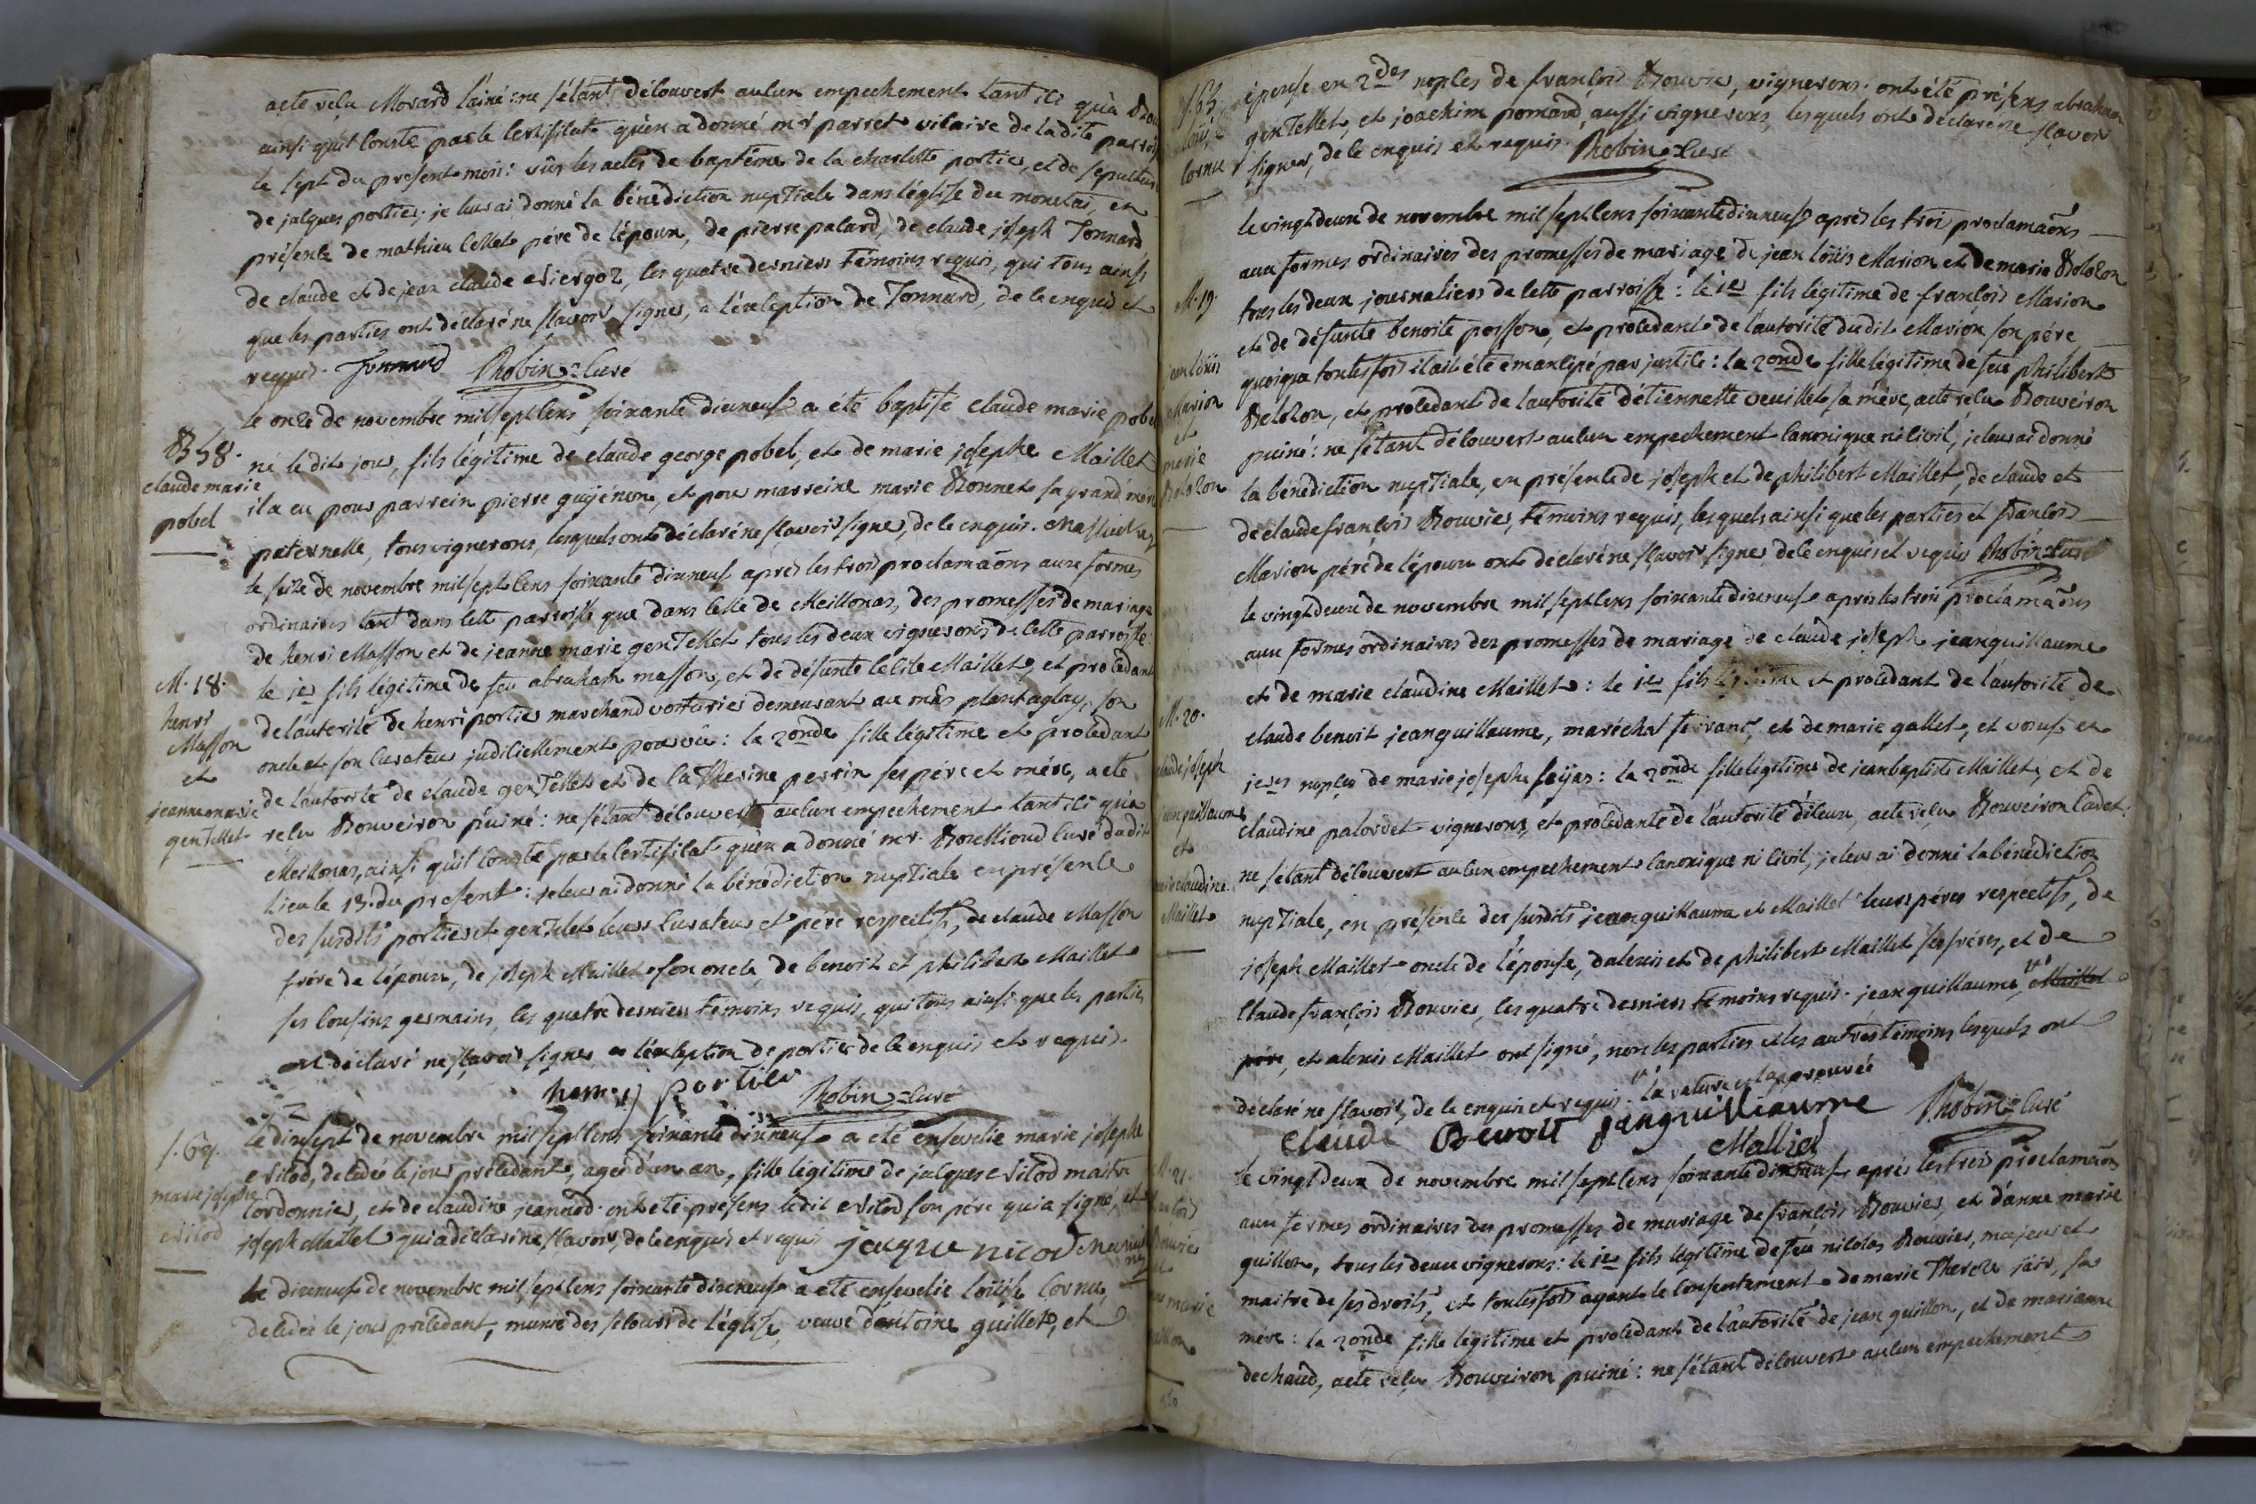 acte reçu Morard l'ainé : ne s'étant découvert aucun empechement tant ici qu'à
ainsi qu'il conste par le certificat qu'en a donné mr parret vicaire de la dite parroi
le sept du present mois : vûs les actes de baptême de la charlotte portier, et de sepulture
de jacques portier. je leurs ai donné la bénédiction nuptiale dans l'église du monetai, en
présence de mathieu cellet pére de l'époux, de pierre palard, de claude joseph Tonnard
de claude et de jean claude les quatre derniers témoins requis, qui tous ainsi
que les parties ont déclaré ne sçavoir signer, a l'exception de Tonnard, de ce enquis et
requis. Tonnard Robin curé
B 58.
claude marie
pobel
le onze de novembre mil sept cens soixante dixneuf a été baptisé claude marie pobel
né le dit jour, fils légitime de claude george pobel, et de marie josephe Maillet
il a eu pour parrein pierre guyénon, et pour marreine marie Bonnet sa grand'mère
paternelle, tous vignerons, lesquels ont déclaré ne sçavoir signer, de ce enquis.
M. 18.
henri
Masson
et
jeanne marie
genTellet
le seize de novembre mil sept cens soixante dixneuf après les trois proclamaõns aux formes
ordinaires tant dans cette parroisse que dans celle de Meillonas, des promesses de mariage
de henri Masson et de jeanne marie genTellet tous les deux vignerons de cette parroisse :
le 1er fils légitime de feu abraham masson, et de défunte cecile Maillet, et procedant
de l'autorité de henri portier marchand voiturier demeurant au mâs plantaglay, son
oncle et son curateur judiciellement pourvu : la 2onde fille légitime et procedant
de l'autorité de claude genTellet et de catherine perrin ses pére et mére, acte
reçu Bouveiron puiné : ne s'étant découvert aucun empechement tant ici qu'à
Meillonas, ainsi qu'il conste par le certificat qu'en a donné mr. curé dudit
lieu le 15. du present : je leurs ai donné la bénédiction nuptiale en présence
des susdits portier et genTelet leurs curateur et pére respectifs, de claude Masson
frére de l'époux, de joseph Maillet son oncle, de benoit et philibert Maillet
ses cousins germains, les quatre derniers témoins requis, qui tous ainsi que les parties
ont déclaré ne sçavoir signer a l'exception de portier de ce enquis et requis.
henry portier Robin curé
S. 64.
marie josephe
Nicod
le dixsept de novembre mil sept cens soixante dixneuf a été ensevelie marie josephe
Nicod, decedée le jour précédant, agée d'un an, fille légitime de jacques Nicod maitre
cordonnier, et de claudine jeannod. ont été présens ledit Nicod son pére qui a signé, et
joseph Maillet qui a déclaré ne sçavoir, de ce enquis et requis jacque nicod
le dixneuf de novembre mil sept cens soixante dixneuf a été ensevelie loüise cornu,
decedée le jour précédant, munie des secours de l'église, veuve d'antoine guillet, et
S. 65
cornu
épouse en 2des noples de françois Bouvier, vignerons. ont été présens abraham
genTellet, et joachim pomard, aussi vignerons, lesquels ont déclaré ne sçavoir
signer, de ce enquis et requis. Robin curé
M. 19.
jean loüis
Marion
et
marie
Bolozon
le vingt deux de novembre mil sept cens soixante dixneuf après les trois proclamaõns
aux formes ordinaires des promesses de mariage de jean loüis Marion et de marie Bolozon
tous les deux journaliers de cette parroisse : le 1er fils légitime de françois Marion
et de défunte benoite poisson, et procedant de l'autorité dudit Marion son pére
quoique toutesfois il ait été émancipé par justice : la 2onde fille légitime de feu philibert
Bolozon, et procedant de l'autorité d'étiennette veuillet sa mére, acte reçu Bouveiron
puiné : ne s'étant découvert aucun empechement canonique ni civil, je leurs ai donné
la bénédiction nuptiale, en présence de joseph et de philibert Maillet, de claude et
de claude françois Bouvier, témoins requis, lesquels ainsi que les parties et françois
Marion pére de l'époux ont déclaré ne sçavoir signer de ce enquis et requis Robin curé
M. 20.
claude joseph
jeanguillaume
et
marie claudine
Maillet
le vingt deux de novembre mil sept cens soixante dixneuf après les trois proclamaõns
aux formes ordinaires des promesses de mariage de claude joseph jeanguillaume
et de marie claudine Maillet : le 1er fils légitime et procedant de l'autorité de
claude benoit jeanguillaume, maréchal ferrant, et de marie gallet, et vœuf en
1eres noples de marie josephe seyjas : la 2onde fille légitime de jean baptiste Maillet, et de
claudine palordet vignerons, et procedante de l'autorité d'iceux, acte reçu Bouveiron cadet.
ne s'étant découvert aucun empechement canonique ni civil, je leurs ai donné la bénédiction
nuptiale, en présence des susdits jeanguillaume et Maillet leurs péres respectifs, de
joseph Maillet oncle de l'épouse, d'alexis et de philibert Maillet ses fréres, et de
claude françois Bouvier, les quatre derniers témoins requis. jeanguillaume, Maillet
pére, et alexis Maillet ont signé, non les parties et les autres témoins lesquels ont
déclaré ne sçavoir, de ce enquis et requis. la rature est approuvée
claude Benoit janguilliaume Malliet Robin curé
M. 21.
le vingt deux de novembre mil sept cens soixante dixneuf après les trois proclamaõns
aux formes ordinaires des promesses de mariage de françois Bouvier, et d'anne marie
guillon, tous les deux vignerons : le 1er fils légitime de feu nicolas Bouvier, majeur et
maitre de ses droits, et toutesfois ayant le consentement de marie Thereze jair, sa
mére : la 2onde fille légitime et procedant de l'autorité de jean guillon, et de marianne
dechaud, acte reçu Bouveiron puiné : ne s'étant découvert aucun empechement